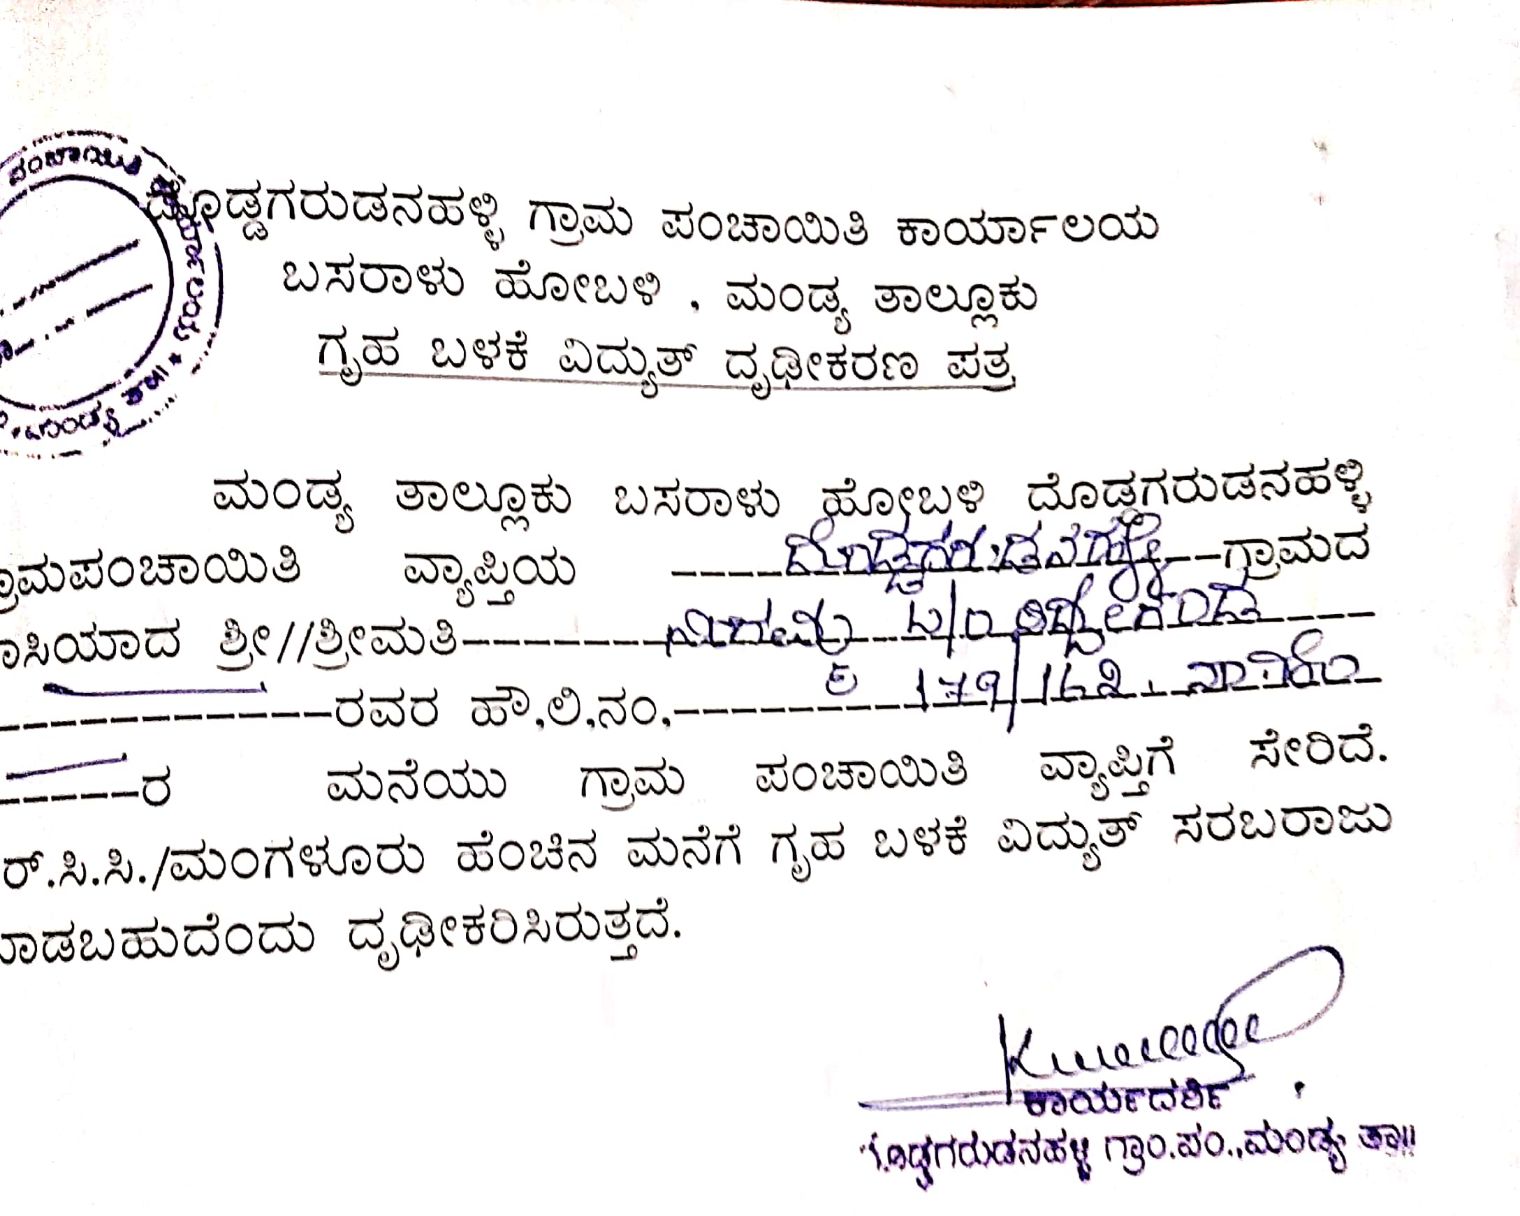 ದೊಡ್ಡಗರುಡನಹಳ್ಳಿ ಗ್ರಾಮ ಪಂಚಾಯಿತಿ ಕಾರ್ಯಾಲಯ
ಬಸರಾಳು ಹೋಬಳಿ , ಮಂಡ್ಯ ತಾಲ್ಲೂಕು
ಗೃಹ ಬಳಕೆ ವಿದ್ಯುತ್ ದೃಢೀಕರಣ ಪತ್ರ
ಪಂಚಾಯಿತಿ ಕಾರ್ಯಾಲಯ * ಮಂಡ್ಯ ತಾ||
ಮಂಡ್ಯ ತಾಲ್ಲೂಕು ಬಸರಾಳು ಹೋಬಳಿ ದೊಡ್ಡಗರುಡನಹಳ್ಳಿ
ಗ್ರಾಮಪಂಚಾಯಿತಿ ವ್ಯಾಪ್ತಿಯ ----ದೊಡ್ಡಗರುಡನಹಳ್ಳಿ--ಗ್ರಾಮದ
ಾಸಿಯಾದ ಶ್ರೀ//ಶ್ರೀಮತಿ--------
------------ರವರ ಹೌ.ಲಿ.ನಂ.--------179/162.
------ರ ಮನೆಯು ಗ್ರಾಮ ಪಂಚಾಯಿತಿ ವ್ಯಾಪ್ತಿಗೆ ಸೇರಿದೆ.
ರ್.ಸಿ.ಸಿ./ಮಂಗಳೂರು ಹೆಂಚಿನ ಮನೆಗೆ ಗೃಹ ಬಳಕೆ ವಿದ್ಯುತ್ ಸರಬರಾಜು
ಮಾಡಬಹುದೆಂದು ದೃಢೀಕರಿಸಿರುತ್ತದೆ.
ಕಾರ್ಯದರ್ಶಿ
ದೊಡ್ಡಗರುಡನಹಳ್ಳಿ ಗ್ರಾಂ.ಪಂ.,ಮಂಡ್ಯ ತಾ||